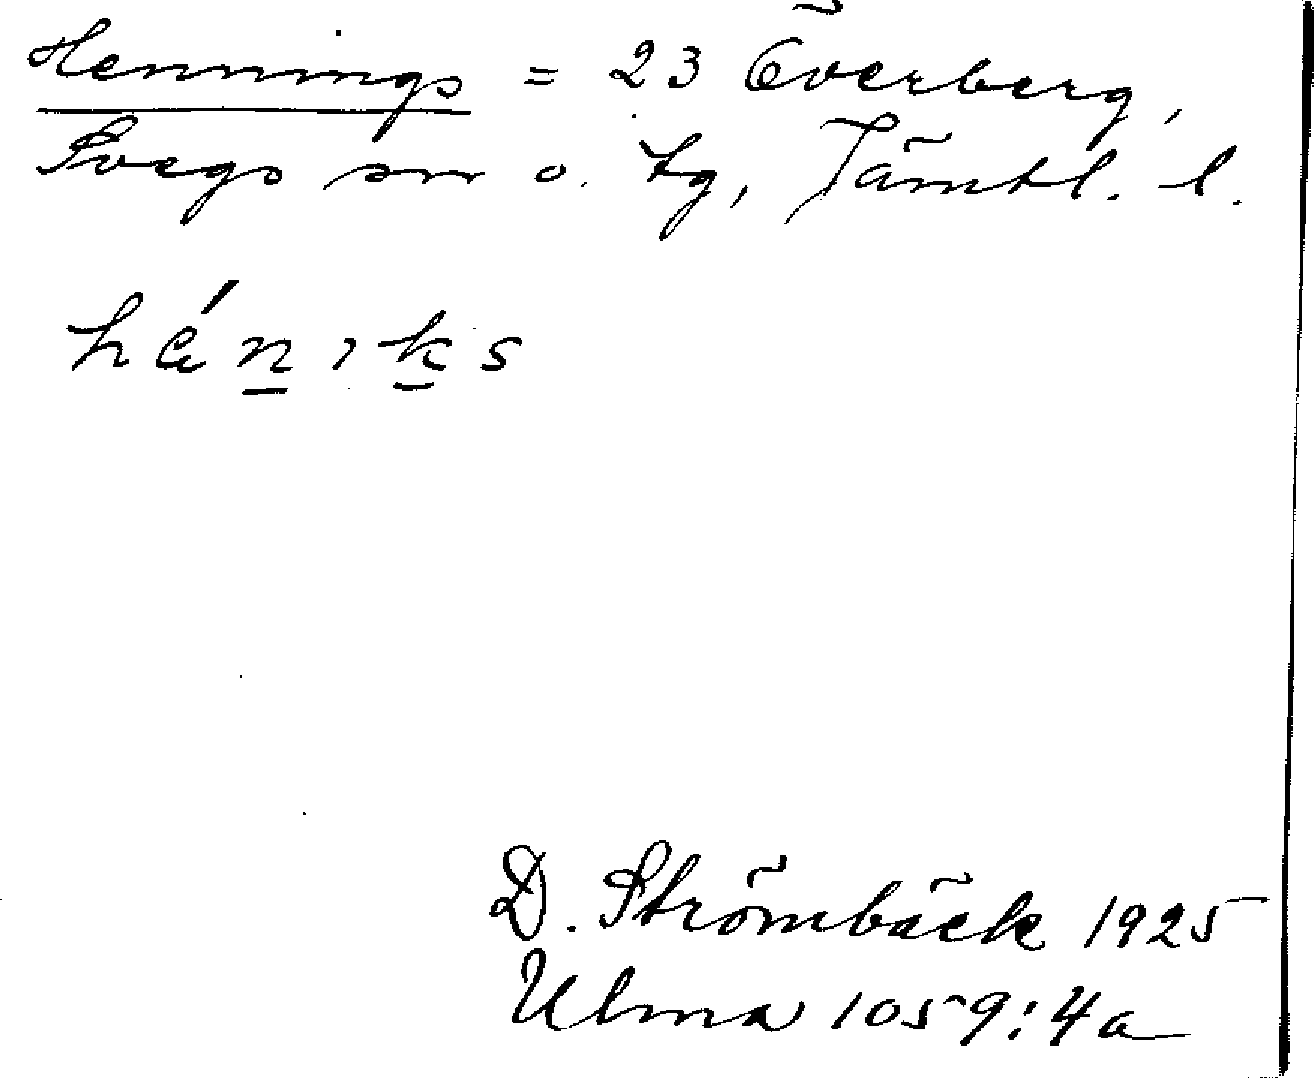 Hennings = 23 Överberg,
Svegs sn o. tg, Jämtl. l.
hén̲ık̲s
D. Strömbäck 1925
Ulma 1059:4a